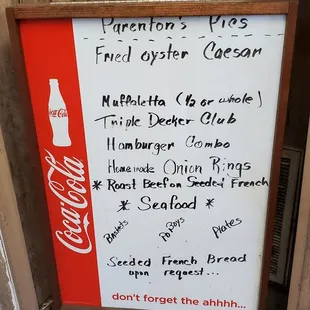 Parenton's Pics
Fried oyster Caesar
Muffaletta (½ or whole)
Triple Decker Club
Hamburger Combo
Homemade Onion Rings
* Roast Beef on Seeded French
* Seafood *
Baskets PoBoys Plates
Seeded French Bread
upon request...
don't forget the ahhhh...
Coca-Cola
Coca-Cola